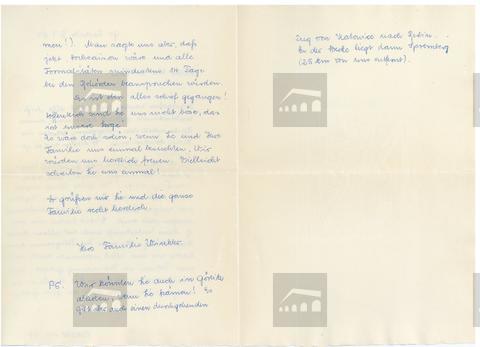 men!). Man sagte uns aber, daß
jetzt Hochsaison wäre und alle
Formalitäten mindestens 14 Tage
bei den Behörden beanspruchen würden.
Es ist eben alles schief gegangen!
Hoffentlich sind Sie uns nicht böse, das
ist unsere Sorge!
Es wäre doch schön, wenn Sie und Ihre
Familie uns einmal besuchten. Wir
würden uns herzlich freuen. Vielleicht
schreiben Sie uns einmal!
Es grüßen wir Sie und die ganze
Familie recht herzlich.
Ihre Familie Winkler.
PS. Wir könnten Sie auch in Görlitz
abholen, wenn Sie kämen! Es
gibt aber auch einen durchgehenden
Zug von Katowice nach Berlin.
An der Strecke liegt dann Spremberg
(25 km von uns entfernt).